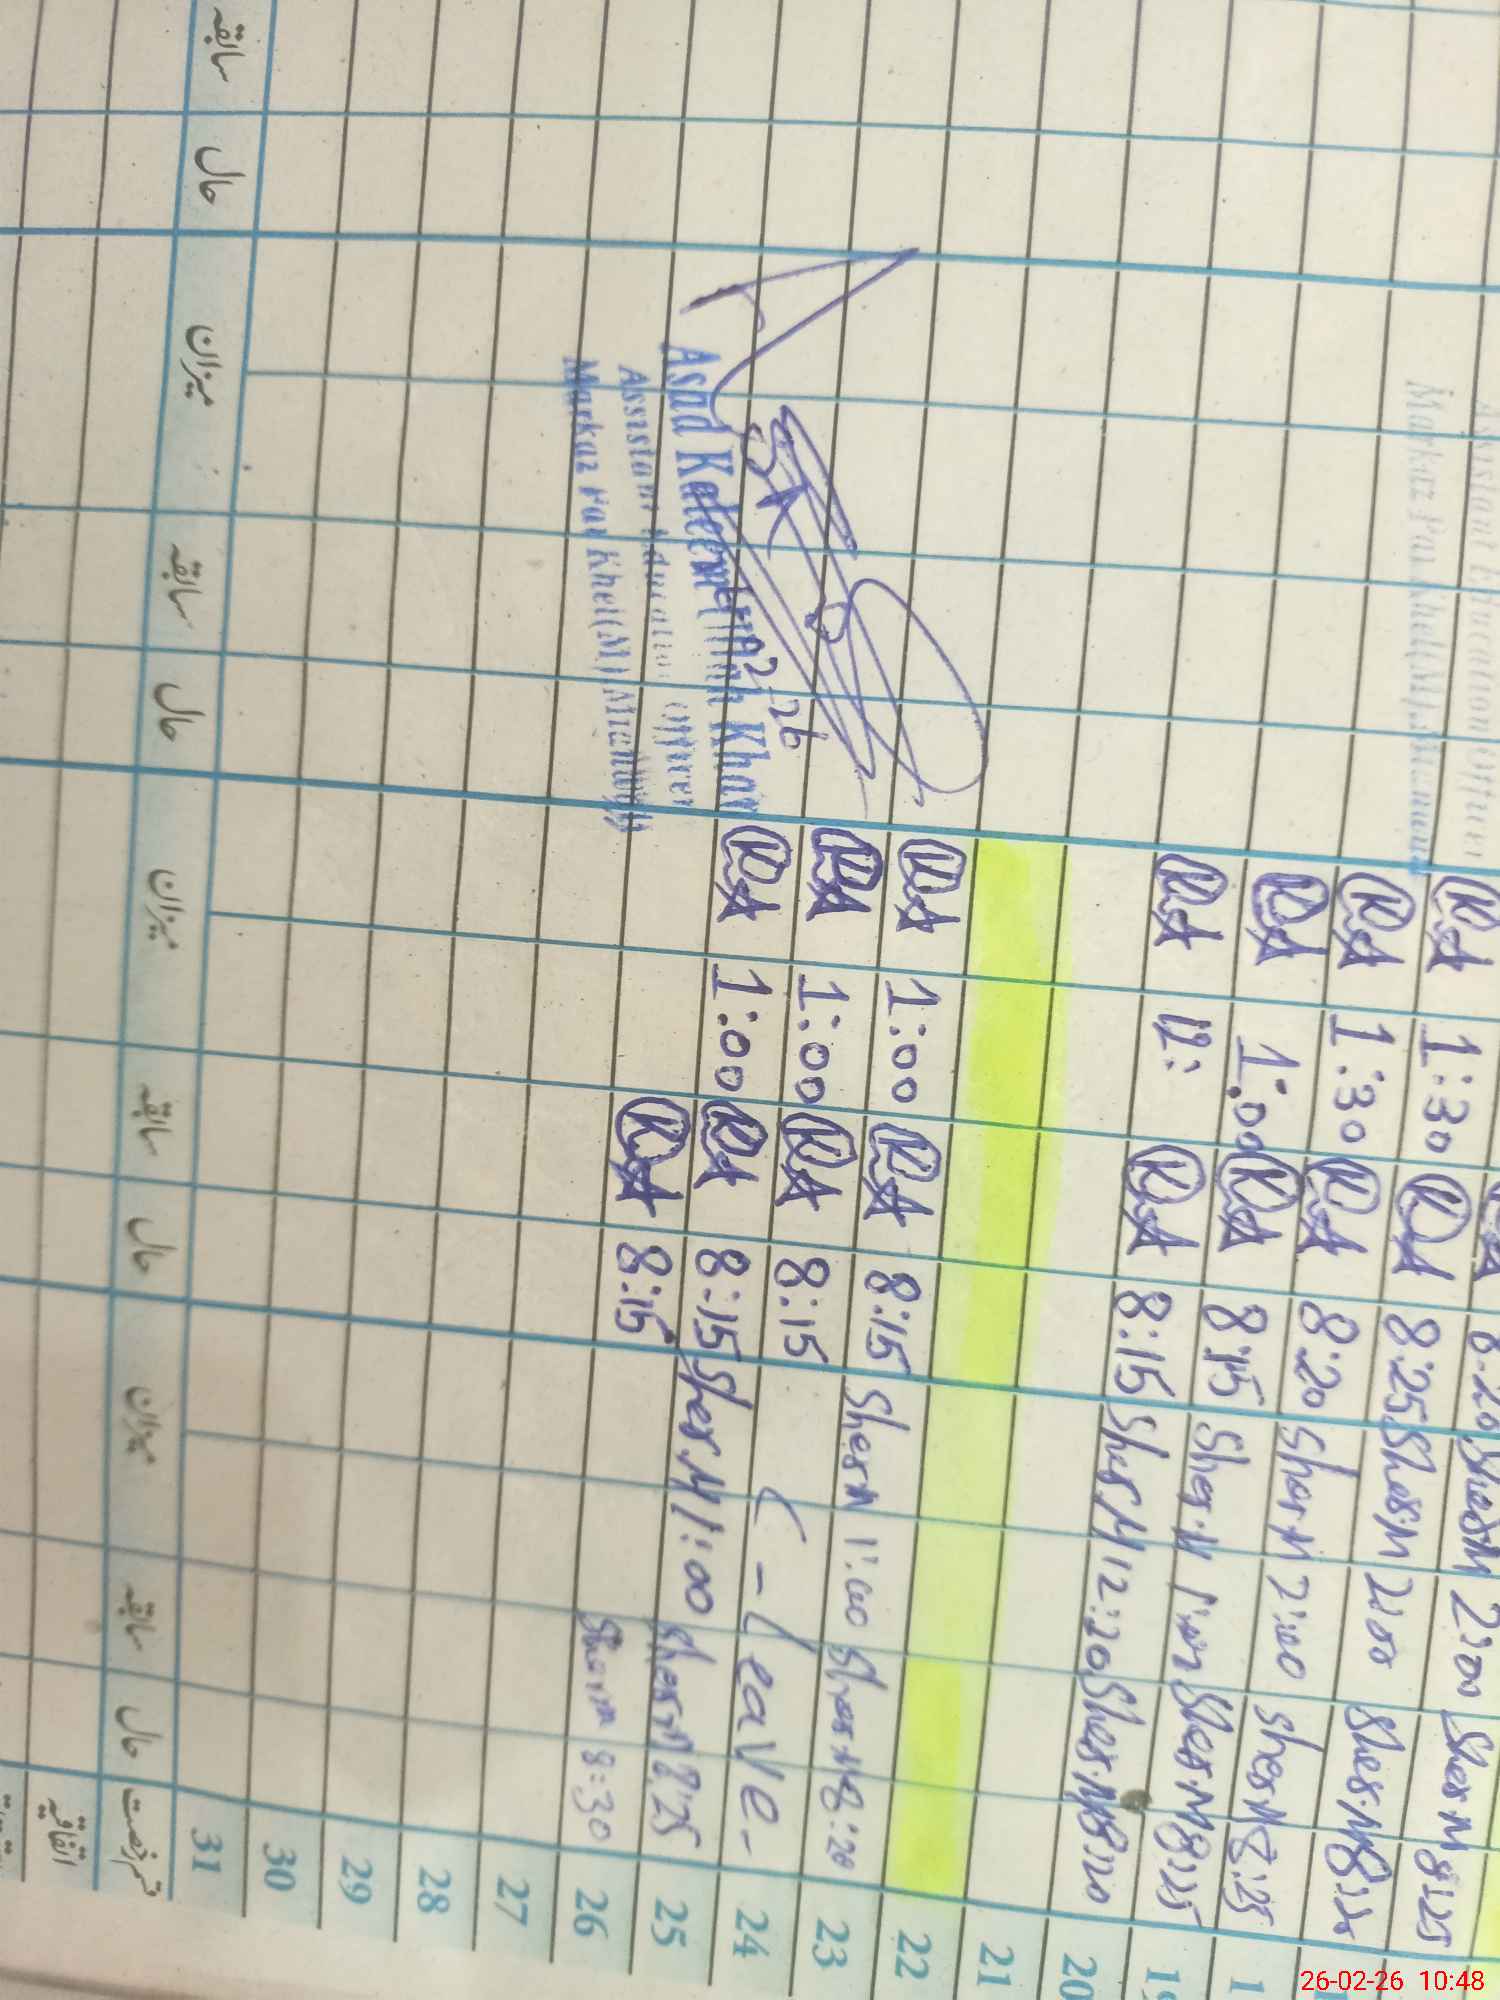 KA 1:30 KA 8:25 Sher M 2:00 Sher M 8:25
KA 1:30 KA 8:20 Sher M 2:00 Sher M
KA 1:00 KA 8:15 Sher M 2:00 Sher M 8:25
KA 12: KA 8:15 Sher M Sher M 8:25
Sher M 12:20 Sher M 8:20
20
21
KA 1:00 KA 8:15 22
KA 1:00 KA 8:15 Sher M 1:00 Sher M 8:20 23
KA 1:00 KA 8:15 C-Leave- 24
KA 8:15 Sher M 1:00 Sher M 8:25 25
Sher M 8:30 26
27
28
29
30
31
سابقہ حال میزان سابقہ حال میزان سابقہ حال میزان سابقہ حال قسم رخصت
اتفاقیہ
Assistant Education Officer
Markaz Pai Khel(M) Mianwali
Asad Kaleem Ullah Khan
Assistant Education Officer
Markaz Pai Khel(M) Mianwali
26-02-26 10:48